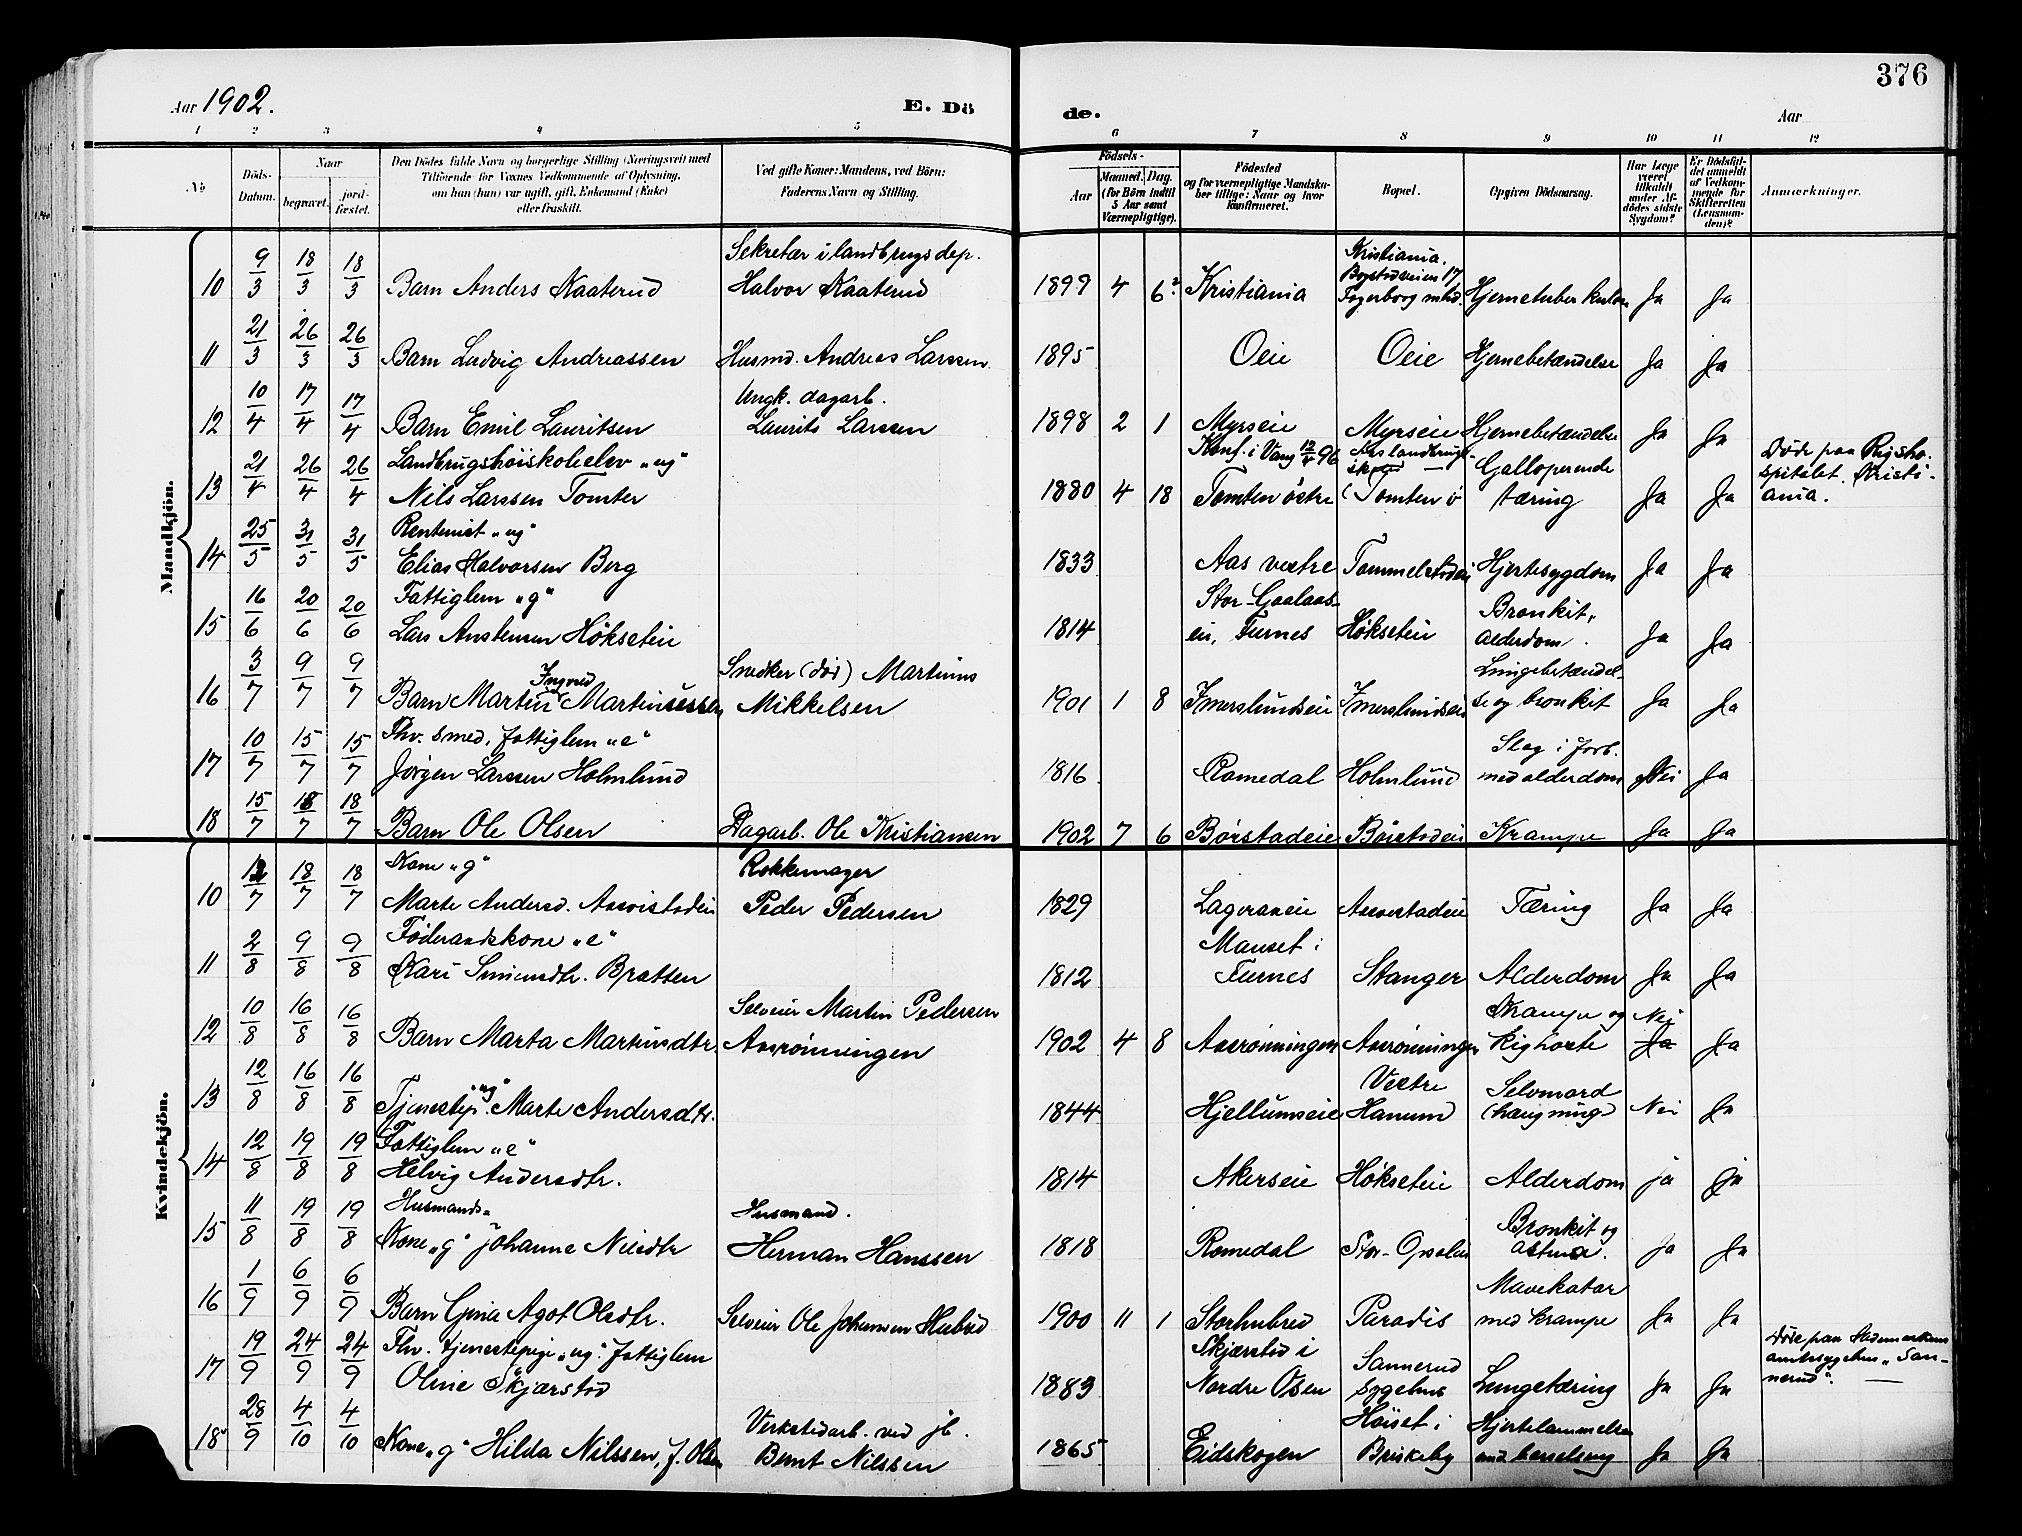 376
Aar 1902.
E. Dö
de.
Aar
1 2 3 4 5 6 7 8 9 10 11 12
No
Döds-Datum.
Naar
begravet.
jord-fæstet.
Den Dödes fulde Navn og borgerlige Stilling (Næringsvei) med
Tilföiende for Voxnes Vedkommende af Oplysning,
om han (hun) var ugift, gift, Enkemand (Enke)
eller fraskilt.
Ved gifte Koner: Mandens, ved Börn:
Faderens Navn og Stilling.
Födsels-
Aar
Maaned. Dag.
(for Börn indtil
5 Aar samt
Værnepligtige).
Födested
og for værnepligtige Mandska-
ber tillige: Naar og hvor
konfirmeret.
Bopæl.
Opgiven Dödsaarsag.
Har Læge
været
tilkaldt
under Af-
dödes sidste
Sygdom?
Er Dödsfal-
det anmeldt
af Vedkom-
mende for
Skifteretten
(Lensman-
den)?
Anmærkninger.
Mandkjön.
10 9/3 18/3 18/3 Barn Anders Kaaterud Sekretær i landbrugsdep. Halvor Kaaterud 1899 4 6 Kristiania Kristiania. Bogstadveien 17 Fagerborg mhd. Hjernetuberkulose Ja Ja
11 21/3 26/3 26/3 Barn Ludvig Andreassen Husmd. Andreas Larssen 1895 Oeie Oeie Hjernebetændelse Ja Ja
12 10/4 17/4 17/4 Barn Emil Lauritsen Ungk. dagarb. Laurits Larssen 1898 2 1 Myrseie Myrseie Hjernebetændelse Ja Ja
13 21/4 26/4 26/4 Landbrugshöiskoleelev "ug" Nils Larssen Tomter 1880 4 18 Konf. i Vang 12/4 96 Tomten östre Aas landbrugsskole (Tomten ö Galloperende tæring Ja Ja Döde paa Rigshospitalet. Kristiania.
14 25/5 31/5 31/5 Rentenist "ug" Elias Halvorsen Berg 1833 Aas vestre Tommelstadeie Hjertesygdom Ja Ja
15 16/6 20/6 20/6 Fattiglem "g" Lars Anstensen Hökseteie 1814 Stor-Gaalaaseie, Furnes Hökseteie Bronkit, alderdom. Ja Ja
16 3/7 9/7 9/7 Barn Martin Ingvad Martinussen Snedker (död) Martinus Mikkelsen 1901 1 8 Imerslundseie Imerslundseie Lungebetændelse og bronkit Ja Ja
17 10/7 15/7 15/7 Fhv. smed, fattiglem "e" Jörgen Larssen Holmlund 1816 Romedal Holmlund Slag i forb. med alderdom Nei Ja
18 15/7 18/7 18/7 Barn Ole Olsen Dagarb. Ole Kristiansen 1902 7 6 Börstadeie Börstadeie Krampe Ja Ja
Kvindekjön.
10 12/7 18/7 18/7 Kone "g" Marte Andersd. Aasvistadeie Rokkemager Peder Pedersen 1829 Lageraneie Aasvestadeie Tæring Ja Ja
11 2/8 9/8 9/8 Föderaadskone "e" Kari Simensdtr. Bratten 1812 Mauset i Furnes Stanger Alderdom Ja Ja
12 10/8 16/8 16/8 Barn Marta Martinsdtr. Selveier Martin Pedersen Aasrönningen 1902 4 8 Aasrönningen Aasrönningen Krampe og kighoste Nei Ja Ja
13 12/8 16/8 16/8 Tjenestep. "ug" Marte Andersdtr. 1844 Hjellumseie Vestre Hanum Selvmord (hængning) Nei Ja
14 12/8 19/8 19/8 Fattiglem "e" Helvig Andersdtr. 1814 Akerseie Hökseteie Alderdom ja ja
15 11/8 19/8 19/8 Husmands- Kone "g" Johanne Nilsdtr Husmand. Herman Hanssen 1818 Romedal Stor-Opsaleie Bronkit og astma. Ja Ja
16 1/9 6/9 6/9 Barn Gina Agot Olsdtr. Selveier Ole Johansen Hubred 1900 11 1 Storhubred Paradis Mavekatar med krampe Ja Ja
17 19/9 24/9 24/9 Fhv. tjenestepige "ug". fattiglem Oline Skjærstad 1883 Skjærstad i Nordre Osen Sannerud sygehus Lungetæring Ja Ja Döde paa Hedemarkens amtssygehus "Sannerud".
18 28/9 4/10 4/10 Kone "g" Hilda Nilssen, f. Olsen Verkstedarb. ved jb. Bernt Nilssen 1865 Eidskogen Höiset i Briskeby Hjertelammelse ved barselseng Ja Ja